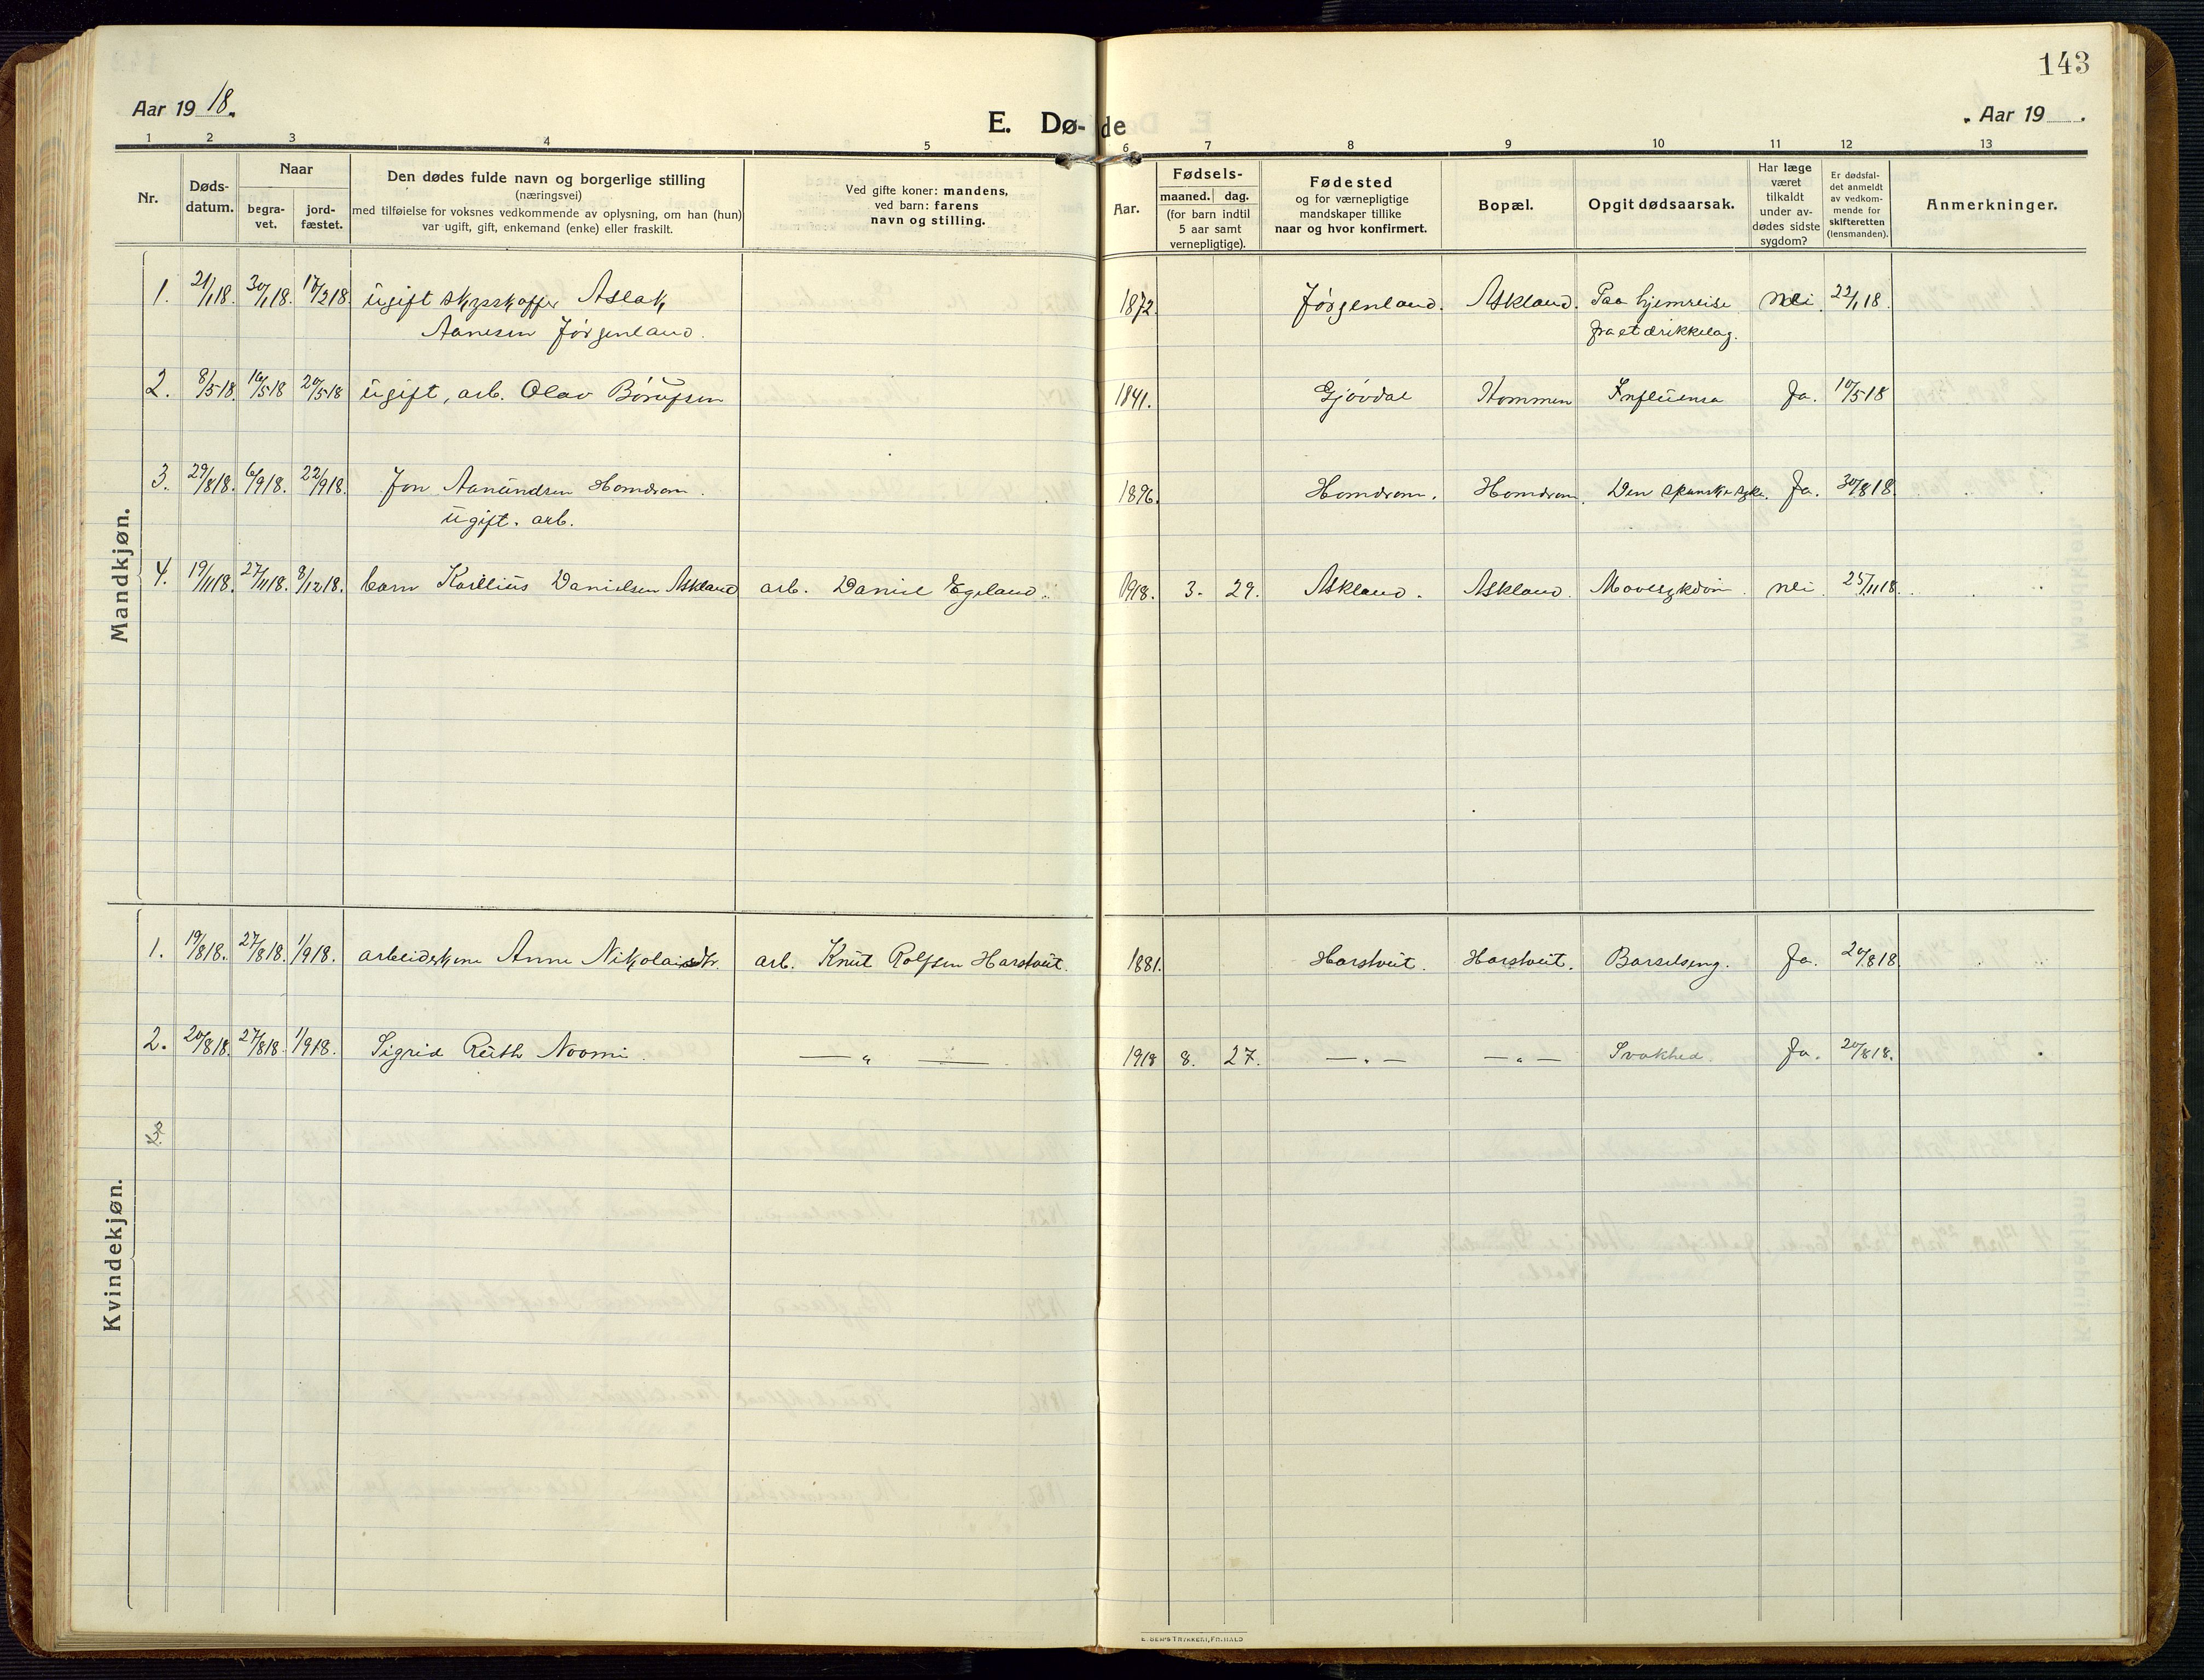 143
Aar 19 18.
E. Dø- de
Aar 19 .
1 2 3 4 5 6 7 8 9 10 11 12 13
Nr.
Døds-
datum.
Naar
begra-
vet.
jord-
fæstet.
Den dødes fulde navn og borgerlige stilling
(næringsvei)
med tilføielse for voksnes vedkommende av oplysning, om han (hun)
var ugift, gift, enkemand (enke) eller fraskilt.
Ved gifte koner: mandens,
ved barn: farens
navn og stilling.
Aar.
Fødsels-
maaned. dag.
(for barn indtil
5 aar samt
vernepligtige).
Fødested
og for værnepligtige
mandskaper tillike
naar og hvor konfirmert.
Bopæl.
Opgit dødsaarsak.
Har læge
været
tilkaldt
under av-
dødes sidste
sygdom?
Er dødsfal-
det anmeldt
av vedkom-
mende for
skifteretten
(lensmanden).
Anmerkninger.
Mandkjøn.
1. 21/1 18. 30/1 18. 17/2 18. ugift skysskaffer Aslak 1872. Jørgenland. Askland. Paa hjemreise nei 22/1 18.
Aanesen Jørgenland. fra et drikkelag.
2. 8/5 18. 16/5 18 20/5 18 ugift, arb. Olav Børufsen 1841. Gjøvdal Hommen Influensa Ja. 10/5 18
3. 29/8 18. 6/9 18. 22/9 18. Jon Aanundsen Homdrom. 1896. Homdrom. Homdrom. Den spanske syke. Ja. 30/8 18.
ugift. arb.
4. 19/11 18. 27/11 18. 8/12 18. barn Karllius Danielsen Askland arb. Daniel Egeland. 1918. 3. 29. Askland. Askland. Mavesykdom. nei. 25/11 18.
Kvindekjøn.
1. 19/8 18. 27/8 18. 1/9 18. arbeiderkone Anne Nikolaisdtr. arb. Knut Rolfsen Harstveit. 1881. Harstveit. Harstveit. Barselseng. Ja. 20/8 18.
2. 20/8 18. 27/8 18. 1/9 18. Sigrid Ruth Noomi. — " — 1918 8. 27. — " — — " — Svakhed. Ja. 20/8 18.